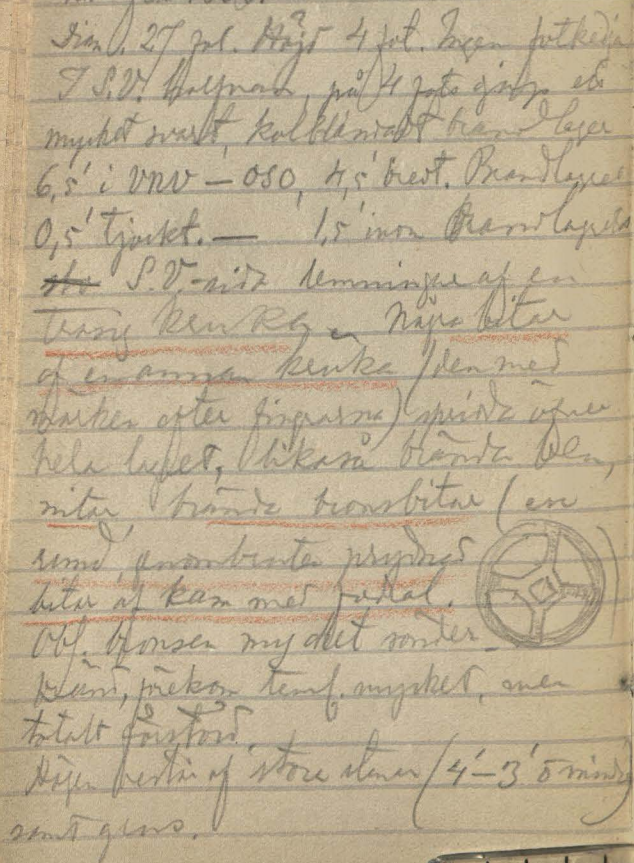 Diam. 27 fot. Höjd 4 fot. Ingen fotkedja
I S.V. på 4 fots djup ett
mycket svart, kolblandadt brandlager
6,5' i VNV – OSO, 4,5' bredt. Brandlagret
0,5' tjockt. — 1,5' inom Brandlagrets
S.V. sida lemningar af en
trasig kruka. Några bitar
af en annan kruka (den med
märken efter fingrarna) spridda öfver
hela lagret, likaså brända ben,
nitar, brända bronsbitar (en
rund, genombruten prydnad
bitar af kam med fodral.
Obs. bronsen mycket sönder-
bränd, förekom teml. mycket, men
totalt förstörd.
Högen består af stora stenar (4'–3' o mindre)
samt grus.